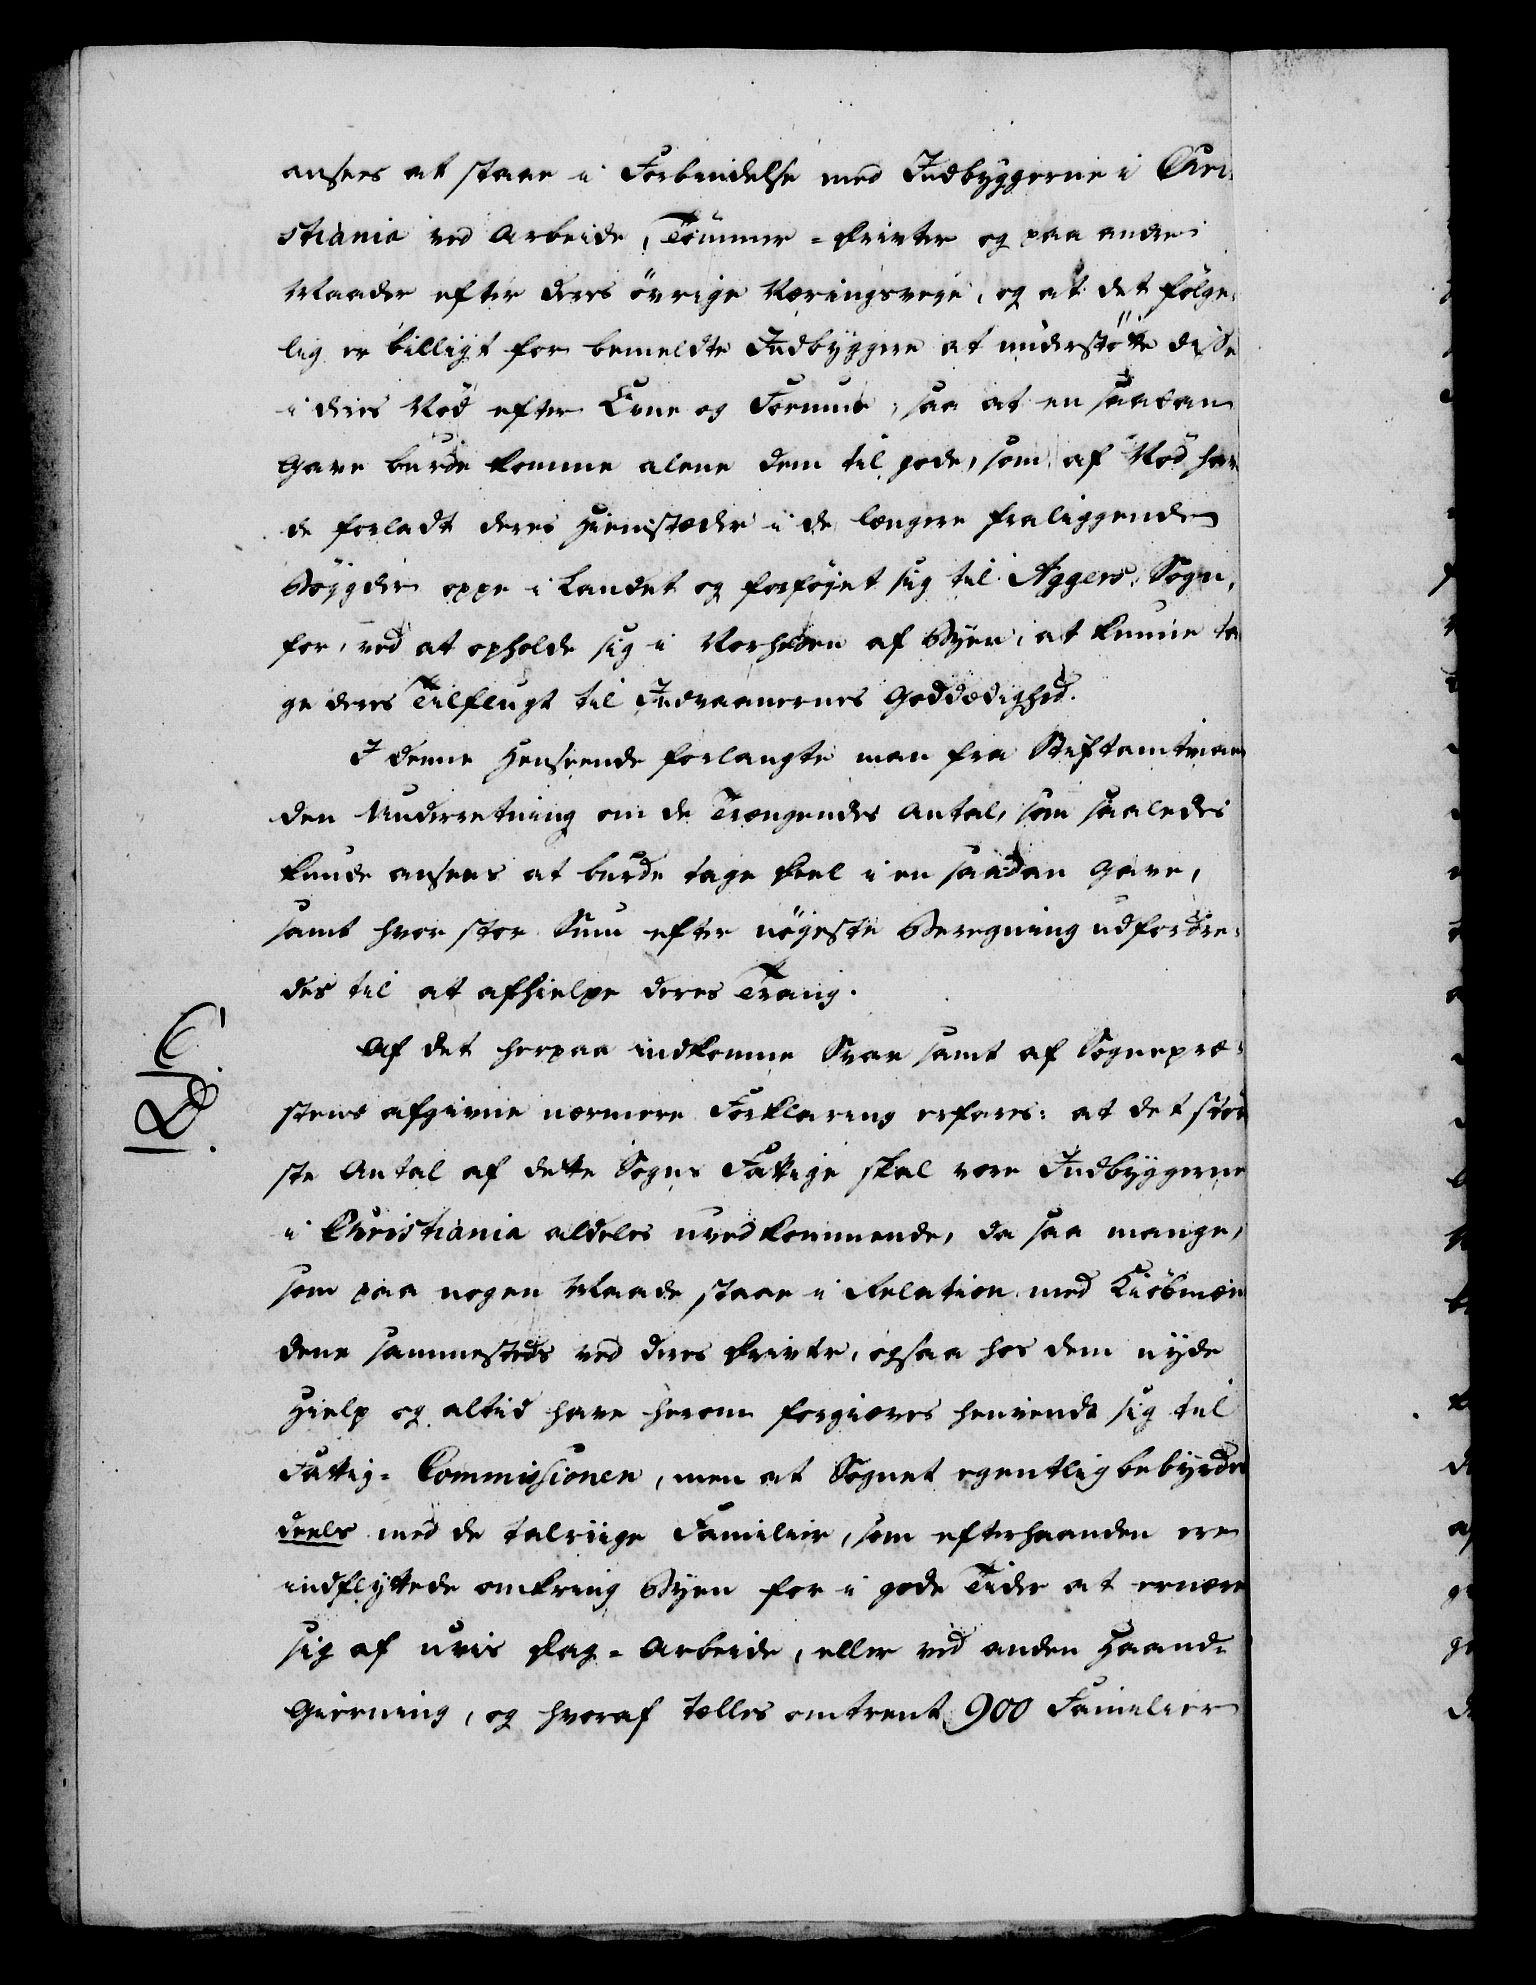 ansees at staae i Forbindelse med Indbyggerne i Chri-
stiania ved Arbeide, Tømmer-Drivter og paa andre
Maader efter deres øvrige Næringsveje, og at det følge-
lig er billigt for bemeldte Indbyggere at understøtte disse
i deres Nød efter Evne og Formue, saa at en saadan
Gave burde komme alene dem til gode, som af Nød hav-
de forladt deres Hiemstæder i de længere fraliggende
Bøygder oppe i Landet og forføjet sig til Aggers Sogn,
for, ved at opholde sig i Nærheden af Byen, at kunne ta-
ge deres Tilflugt til Indvaanernes Godædighed.
I denne Henseende forlangte man fra Stiftamtman-
den Underretning om de Trængendes Antal, som saaledes
kunde ansees at burde tage Deel i en saadan Gave,
samt hvor stor Sum efter nøjeste Beregning udfordre-
des til at afhielpe deres Trang.
Af det herpaa indkomne Svar samt af Sognepræ-
stens afgivne nærmere Forklaring erfares: at det stør-
ste Antal af dette Sogns Fattige skal være Indbyggerne
i Christiania aldeles uvedkommende, da saa mange,
som paa nogen Maade staae i Relation med Kiøbmæn-
dene sammesteds ved deres Drivter, ogsaa hos dem nyde
Hielp og altid have herom forgiæves henvendt sig til
Fattig-Commissionen, men at Sognet egentlig bebyrdes
deels med de talriige Familier, som efterhaanden ere
indflyttede omkring Byen for i gode Tider at ernære
sig af uvis Dag-Arbeide, eller ved anden Haand-
Gierning, og hvoraf tælles omtrent 900 Familier